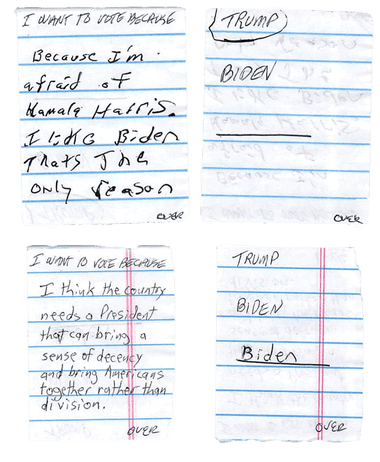 I WANT TO VOTE BECAUSE
Because I'm
afraid of
Kamala Harris.
I liKe Biden
Thats The
only reason
OVER
TRUMP
BIDEN
OVER
I WANT TO VOTE BECAUSE
I think the country
needs a President
that can bring a
sense of decency
and bring Americans
together rather than
division.
OVER
TRUMP
BIDEN
Biden
OVER